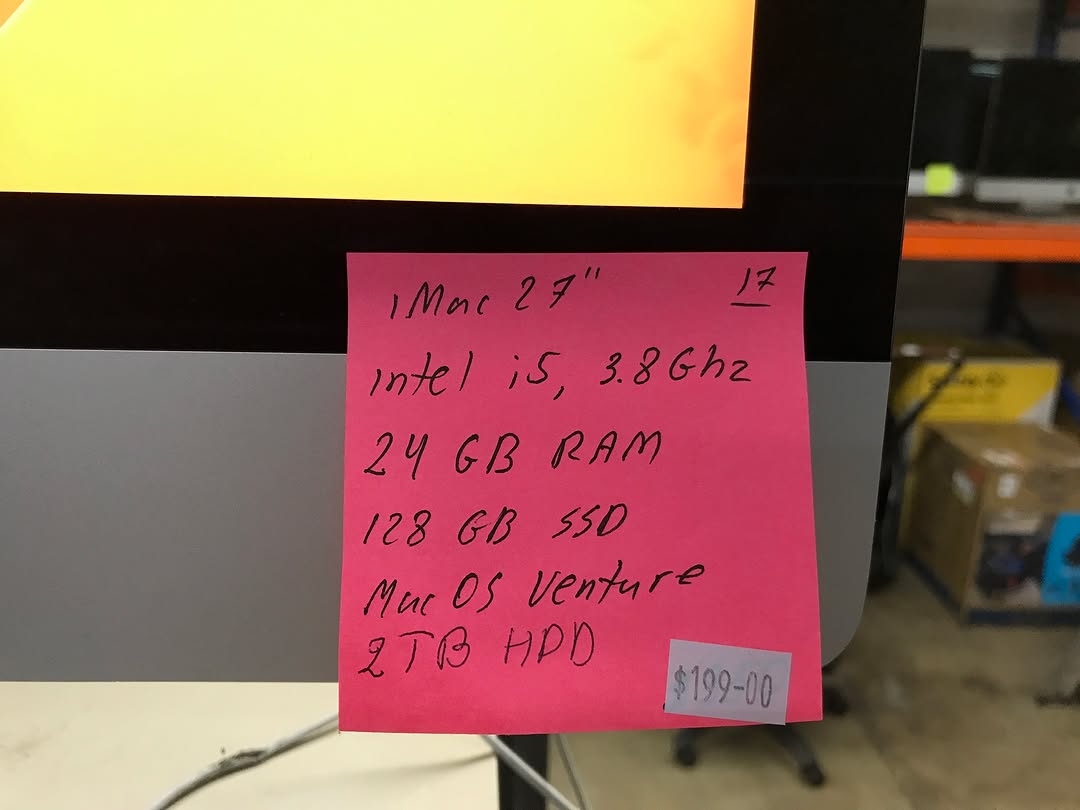 iMac 27" 17
intel i5, 3.8Ghz
24 GB RAM
128 GB SSD
Mac OS Venture
2TB HDD
$199-00